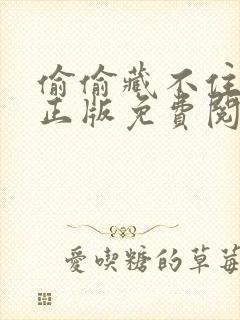 偷偷藏不住
正版免費閱
愛喫糖的草莓